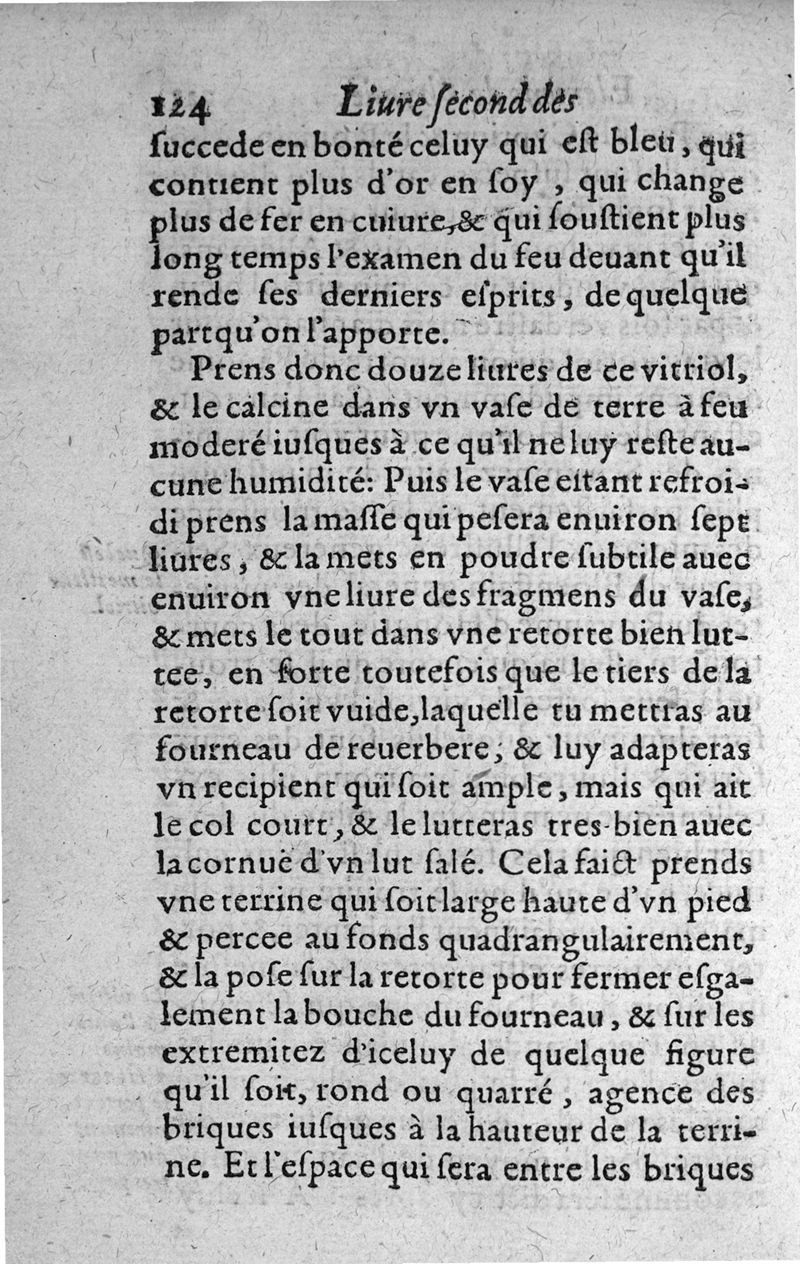 124 Liure ſecond des
ſuccede en bonté celuy qui eſt bleu, qui
contient plus d'or en ſoy , qui change
plus de fer en cuiure, & qui ſouſtient plus
long temps l'examen du feu deuant qu'il
rende ſes derniers eſprits, de quelque
part qu'on l'apporte.
Prens donc douze liures de ce vitriol,
& le calcine dans vn vaſe de terre à feu
moderé iuſques à ce qu'il ne luy reſte au-
cune humidité: Puis le vaſe eſtant refroi-
di prens la maſſe qui peſera enuiron ſept
liures, & la mets en poudre ſubtile auec
enuiron vne liure des fragmens du vaſe,
& mets le tout dans vne retorte bien lut-
tee, en ſorte toutefois que le tiers de la
retorte ſoit vuide, laquelle tu mettras au
fourneau de reuerbere, & luy adapteras
vn recipient qui ſoit ample, mais qui ait
le col court, & le lutteras tres-bien auec
la cornuë d'vn lut ſalé. Cela faict prends
vne terrine qui ſoit large haute d'vn pied
& percee au fonds quadrangulairement,
& la poſe ſur la retorte pour fermer eſga-
lement la bouche du fourneau, & ſur les
extremitez d'iceluy de quelque figure
qu'il ſoit, rond ou quarré , agence des
briques iuſques à la hauteur de la terri-
ne. Et l'eſpace qui ſera entre les briques